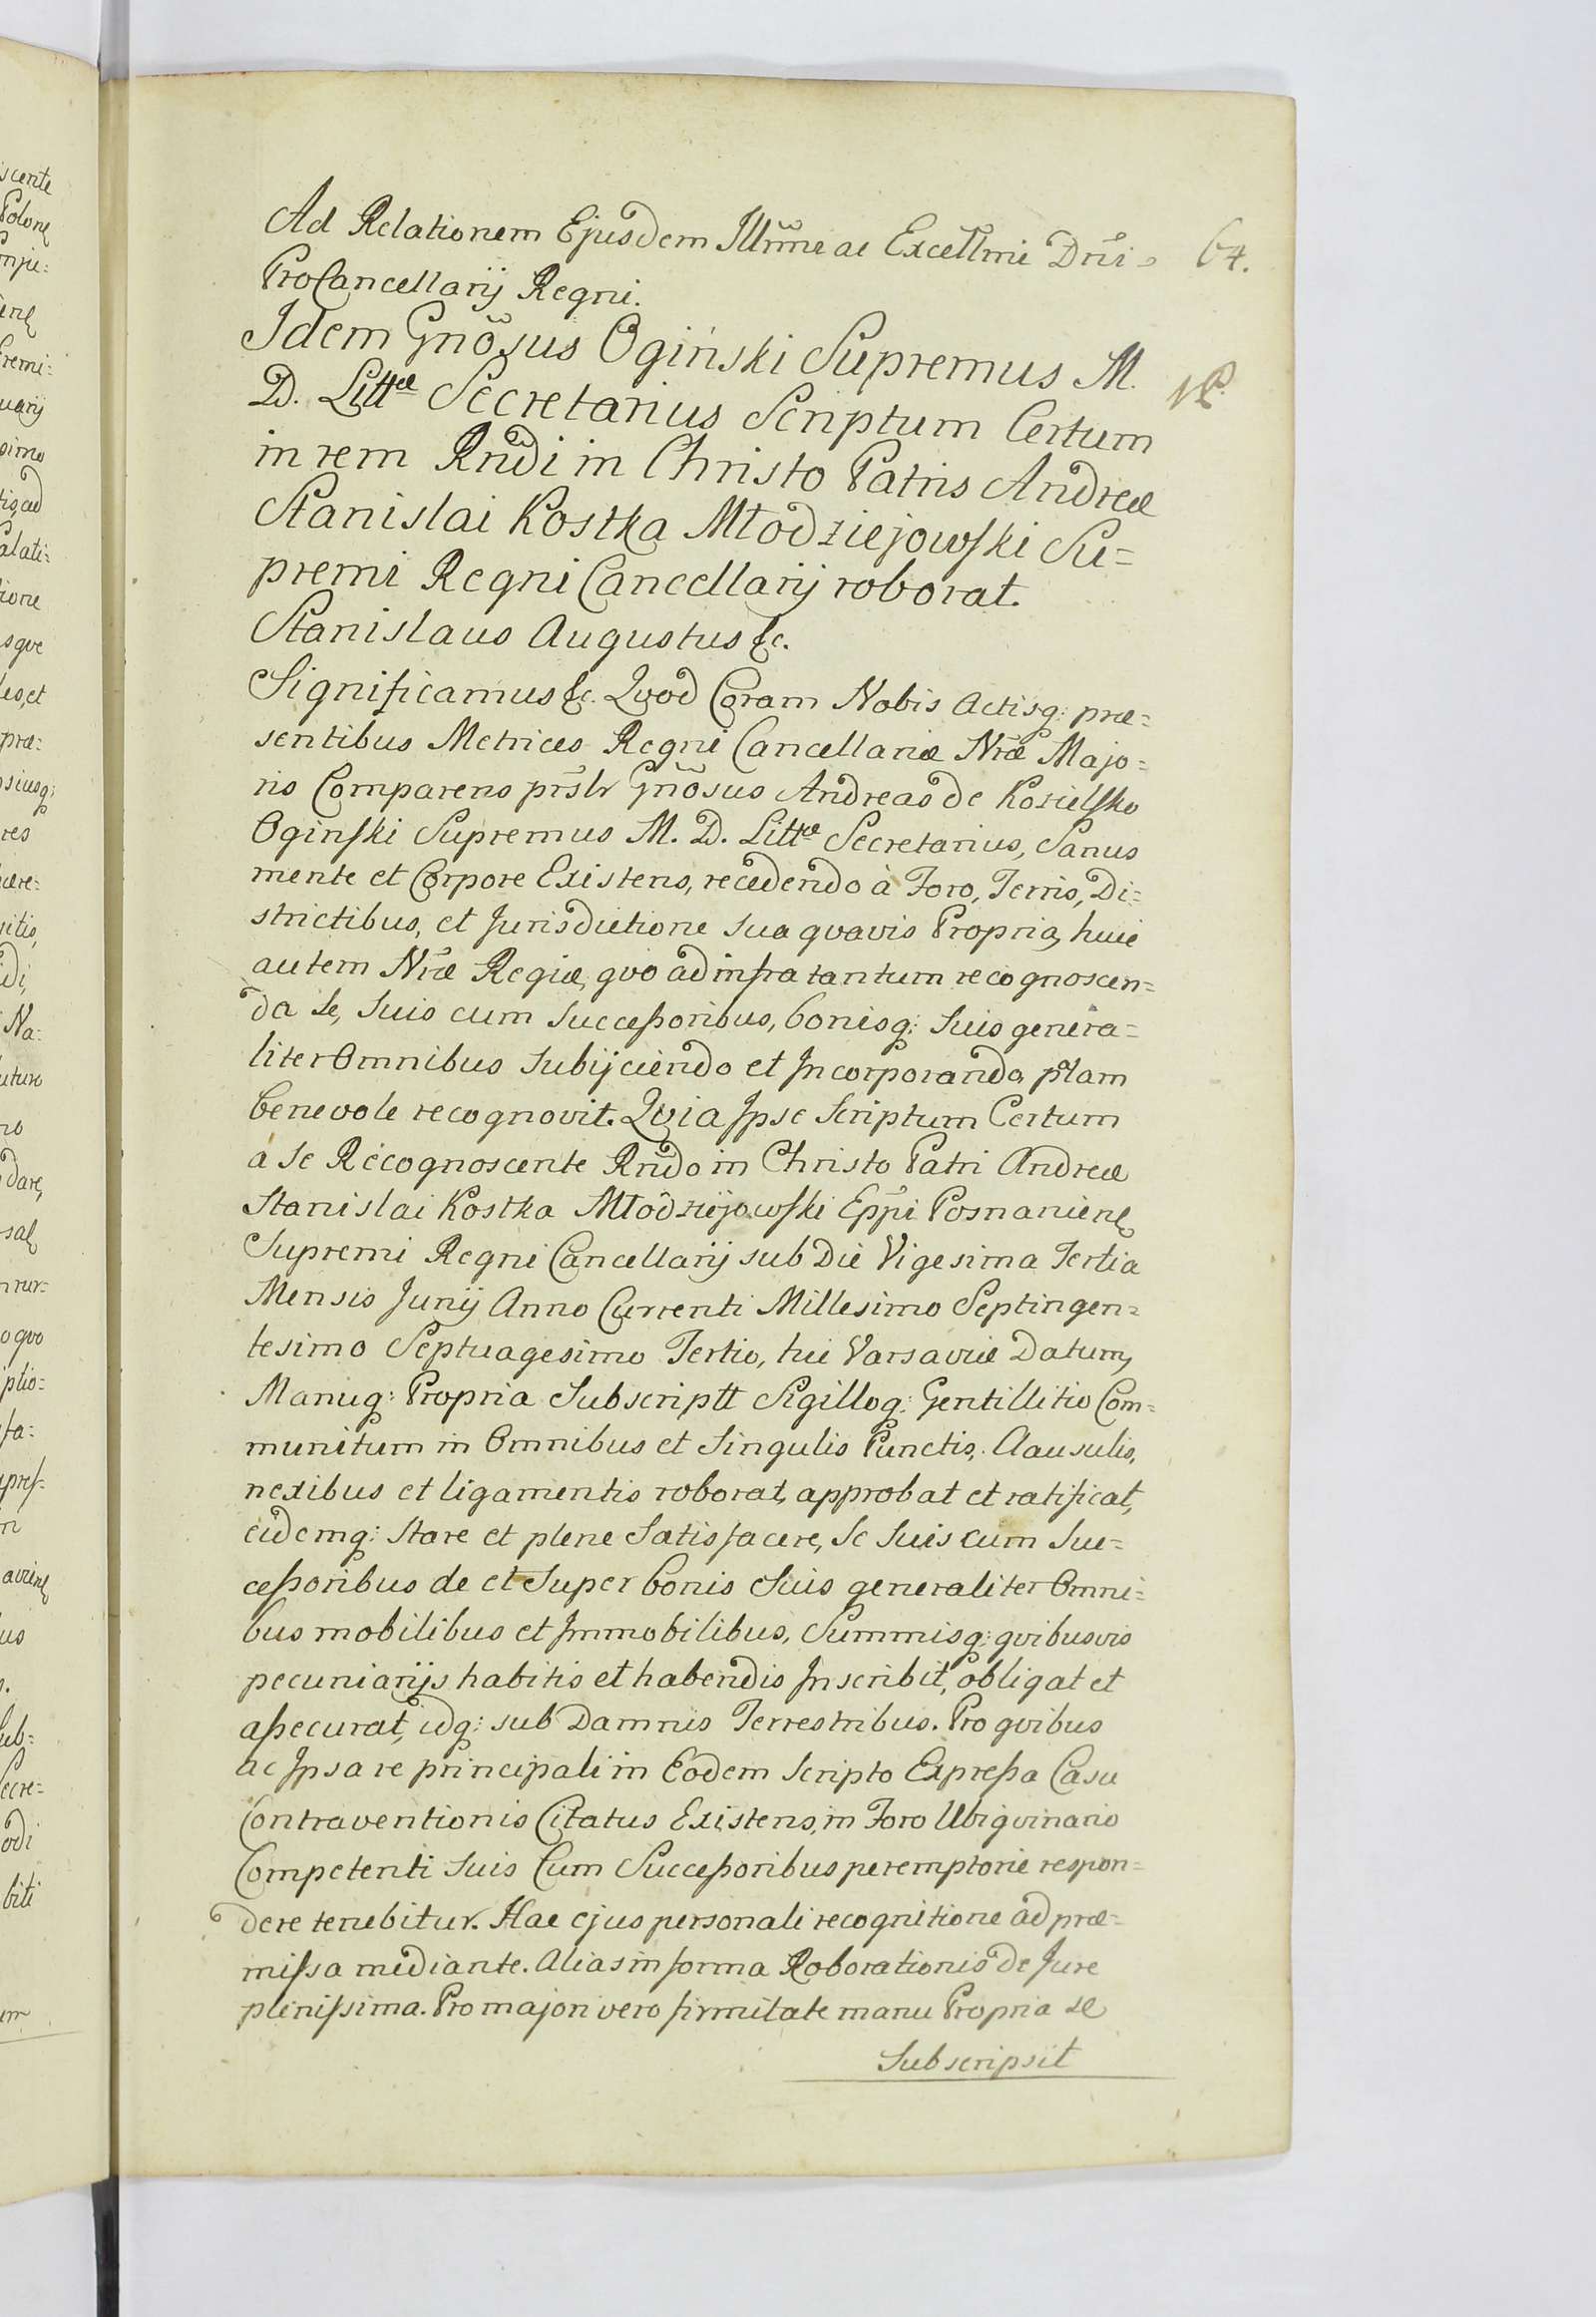 Ad Relationem Ejusdem Illm̃i ac Excellm̃i Dñi 64.
ProCancellarij Regni.
Idem Gnõsus Ogiński Supremus M.
D. Littæ Secretarius Scriptum Certum
in rem Rndi in Christo Patris Andreæ
Stanislai Kostka Młodziejowski Su=
premi Regni Cancellarij roborat.
Stanislaus Augustus &c.
Significamus &c. Quod Coram Nobis Actisq: præ=
sentibus Metrices Regni Cancellariæ Nræ Majo=
ris Comparens prslr Gnõsus Andreas de Kozielsko
Oginski Supremus M. D. Littæ Secretarius, Sanus
mente et Corpore Existens, recedendo à Foro, Terris, Di=
strictibus, et Jurisdictione sua qvavis Propria, huic
autem Nræ Regiæ, qvo ad infra tantum recognoscen=
da se, suis cum successoribus, bonisq: suis genera=
liter Omnibus subijciendo et Incorporando, plam
benevole recognovit. Qvia Ipse Scriptum Certum
a se Recognoscente Rndo in Christo Patri Andreæ
Stanislai Kostka Młodziejowski Eppi Posnanien
Supremi Regni Cancellarij sub Die Vigesima Tertia
Mensis Junij Anno Currenti Millesimo Septingen=
tesimo Septuagesimo Tertio, hic Varsaviæ Datum,
Manuq: Propria Subscriptt Sigilloq: Gentillitio Com=
munitum in Omnibus et Singulis Punctis, Clausulis,
nexibus et ligamentis roborat, approbat et ratificat,
eidemq: Stare et plene Satisfacere, se suis cum suc=
cessoribus de et super bonis suis generaliter Omni=
bus mobilibus et Immobilibus, Summisq: qvibusvis
pecuniarijs habitis et habendis Inscribit, obligat et
assecurat, idq: sub Damnis Terrestribus. Pro qvibus
ac Ipsa re principali in Eodem Scripto Expressa Casu
Contraventionis Citatus Existens, in Foro Ubiqvinario
Competenti suis Cum Successoribus peremptorie respon=
dere tenebitur. Hac ejus personali recognitione ad præ=
missa mediante. Alias in forma Roborationis de Jure
plenissima. Pro majori vero firmitate manu Propria se
Subscripsit